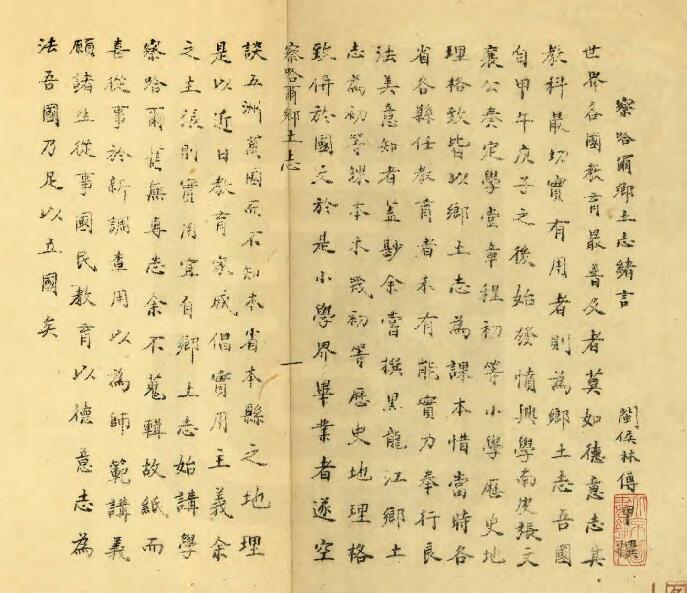 察哈爾鄉土志緒言
閩侯林傳甲撰
世界各國教育最普及者莫如德意志其
教科最切實有用者則為鄉土志吾國
自甲午庚子之後始發憤興學南皮張文
襄公奏定學堂章程初等小學歷史地
理格致皆以鄉土志為課本惜當時各
省各縣任教育者未有能實力奉行良
法美意知者蓋尠余嘗撰黑龍江鄉土
志為初等課本未幾初等歷史地理格
致併於國文於是小學界畢業者遂空
察哈爾鄉土志
一
談五洲萬國而不知本省本縣之地理
是以近日教育家咸倡實用主義余
之主張則實用宜自鄉土志始講學
察哈爾舊無專志余不蒐輯故紙而
喜從事於新調查用以為師範講義
願諸生從事國民教育以德意志為
法吾國乃足以立國矣